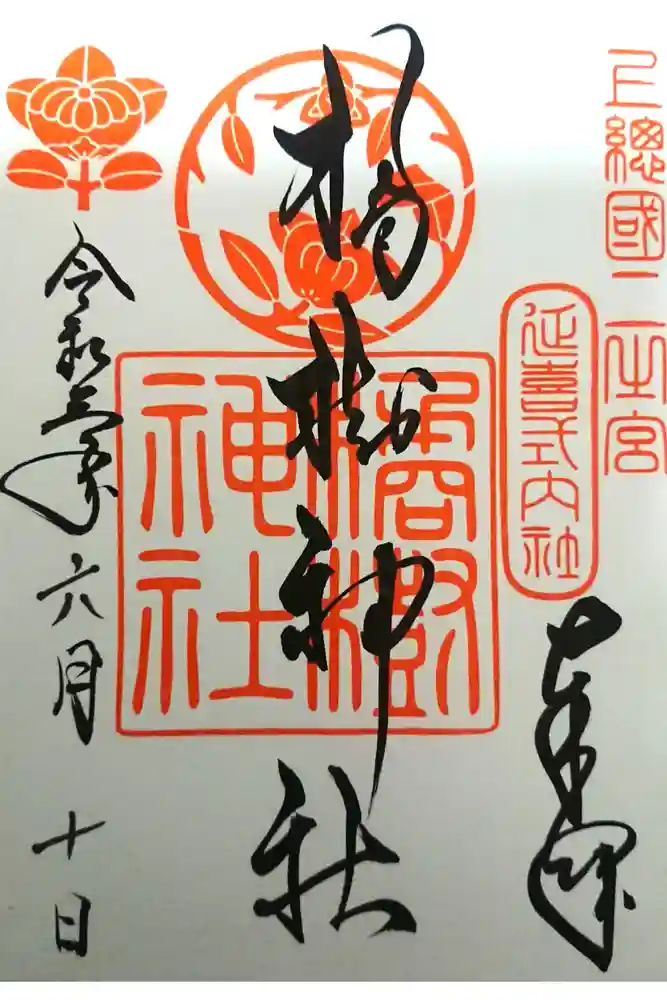 上總國二之宮
延喜式内社
奉拝
橘樹神社
橘樹神社
令和三年
六月
十日